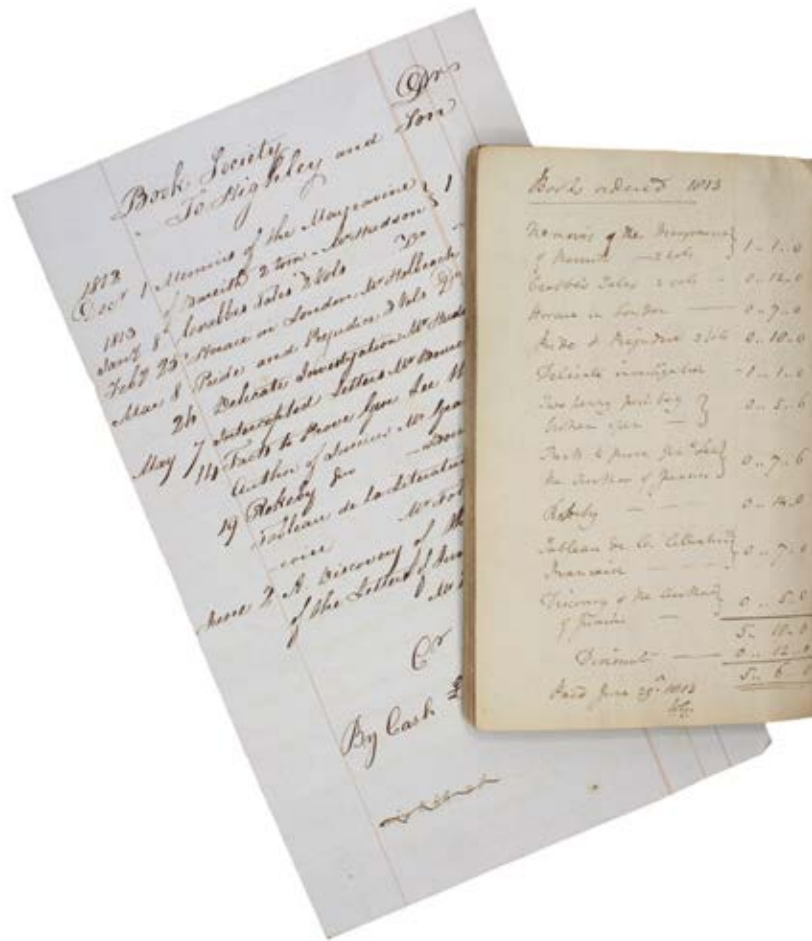 Dr
Book Society
To Highley and Son
1812
Decr 1 Memoirs of the Margravine } 1
of Bareith 2 tom Mr Hudson
1813
Jany 8th Crabbes Tales 2 Vols Do
Feby 25 Horace in London Mr Holbeach
Mar 8 Pride and Prejudice 3 Vols Do
26 Delicate Investigation Mr
May 7 Intercepted Letters Mr
14 Facts to Prove Gen Lee
Author of Junius Mr
19 Rokeby do
Tableau de la Literature
Mr
June 2 A Discovery of the
of the Letters of Jun
Cr
By Cash £
Books ordered 1813
Memoirs of the Margravine }
of Bareith — 2 vols 1 .. 1 .. 0
Crabbe's Tales 2 vols — 0 .. 12 .. 0
Horace in London — 0 .. 7 .. 0
Pride & Prejudice 3 vols 0 .. 18 .. 0
Delicate investigation — 0 .. 1 .. 0
Two penny post bag } 0 .. 5 .. 6
Facts to prove Genl Lee }
the Author of Junius 0 .. 7 .. 6
Rokeby — — 0 .. 14 .. 0
Tableau de la Literature } 0 .. 7 .. 0
Francaise —
Discovery of the Author }
of Junius — 0 .. 5 .. 0
5 .. 18 .. 0
Discount — 0 .. 12 .. 0
5 .. 6 .. 0
Paid June 29th 1813